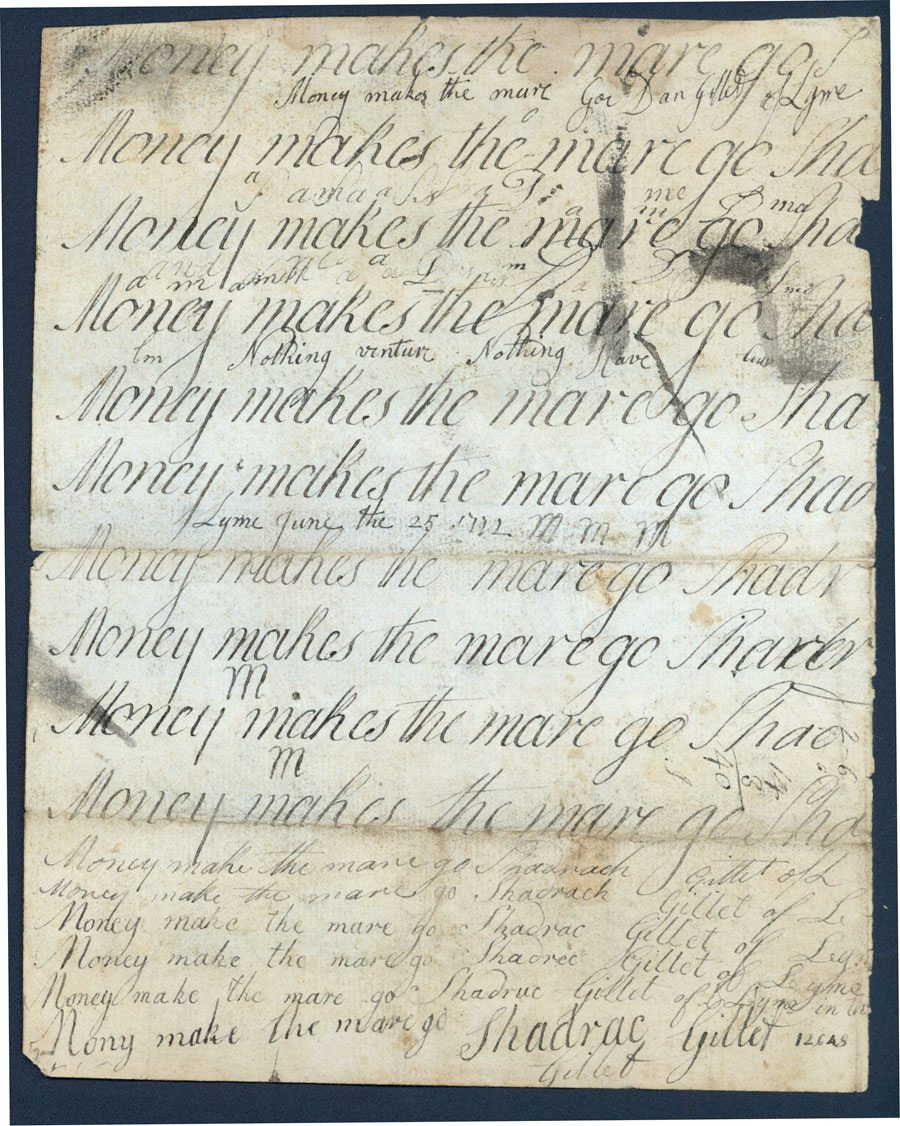 Money makes the mare go S
Money makes the mare Goe Dan Gillet of Lyme
Money makes the mare go Sha
Money makes the mare go Sha
Money makes the mare go Sha
Nothing venture Nothing Have
Money makes the mare go Sha
Money makes the mare go Shad
Lyme June the 25 1772 M M M
Money makes the mare go Shadr
Money makes the mare go Shadr
M
Money makes the mare go Shad
M
Money makes the mare go Sha
Money make the mare go Shadrach Gillet of L
Money make the mare go Shadrach Gillet of Ly
Money make the mare go Shadrac Gillet of
Money make the mare go Shadrec Gillet of Lyme
Money make the mare go Shadruc Gillet of Lyme in
Mony make the mare go Shadrac Gillet 12648
Gillet